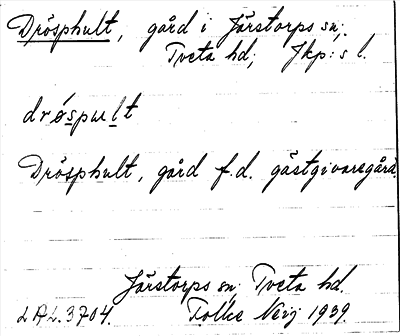 Drösphult, gård i Järstorps sn;
Tveta hd; Jkp:s l.
drǿspult
Drösphult, gård f.d. gästgivaregård.
Järstorps sn. Tveta hd.
LAL.3704. Folke Neij 1939.